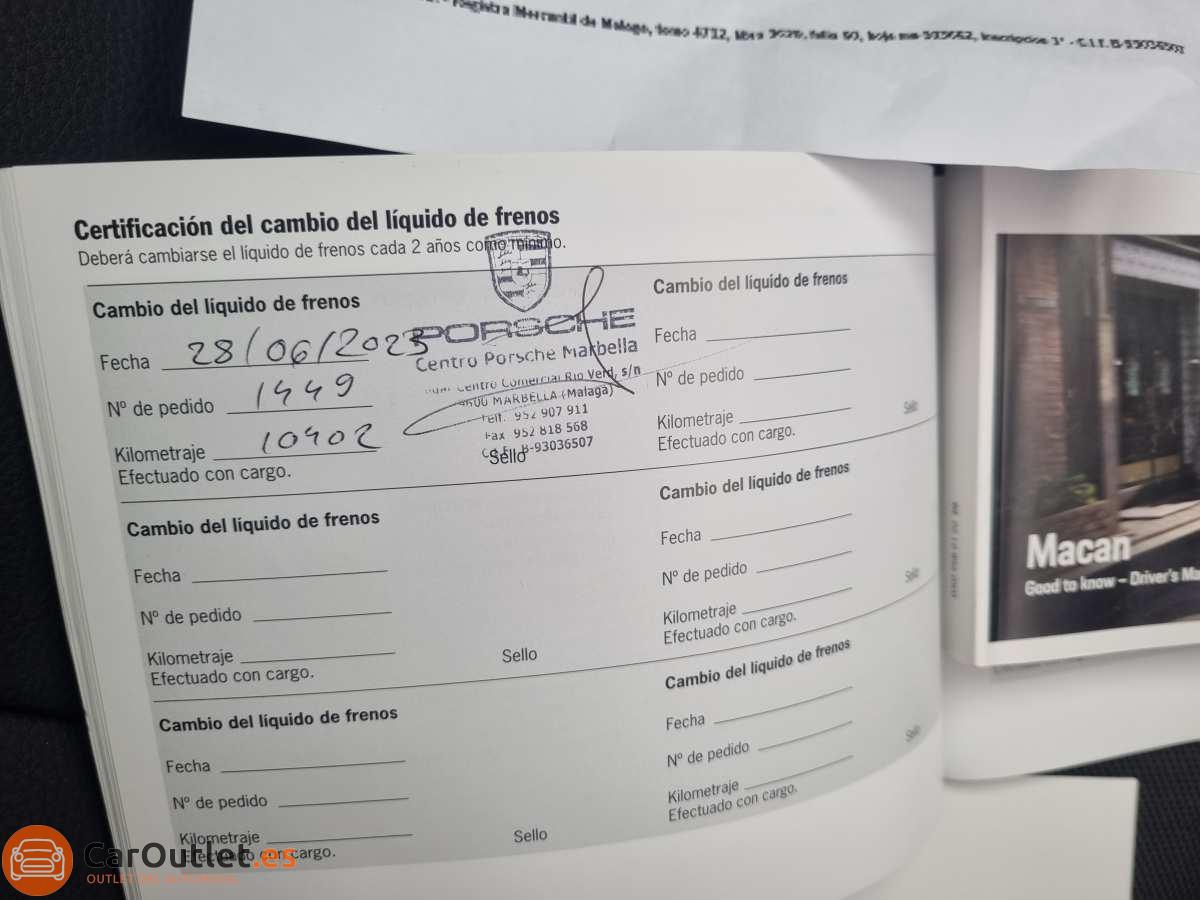 Registra Mercantil de Malaga, tomo 4712,
Certificación del cambio del líquido de frenos
Deberá cambiarse el líquido de frenos cada 2 años como mínimo.
Cambio del líquido de frenos
Fecha 28/06/2023
Nº de pedido 1449
Kilometraje 10402
Efectuado con cargo.
PORSCHE
Centro Porsche Marbella
Centro Comercial Rio Verd, s/n
MARBELLA (Malaga)
Telf. 952 907 911
Fax 952 818 568
B-93036507
Sello
Cambio del líquido de frenos
Fecha
Nº de pedido
Kilometraje
Sello
Efectuado con cargo.
Cambio del líquido de frenos
Fecha
Nº de pedido
Kilometraje
Sello
Efectuado con cargo.
Cambio del líquido de frenos
Fecha
Nº de pedido
Kilometraje
Sello
Efectuado con cargo.
Cambio del líquido de frenos
Fecha
Nº de pedido
Kilometraje
Sello
Efectuado con cargo.
Cambio del líquido de frenos
Fecha
Nº de pedido
Kilometraje
Sello
Efectuado con cargo.
Macan
Good to know – Driver's
CarOutlet.es